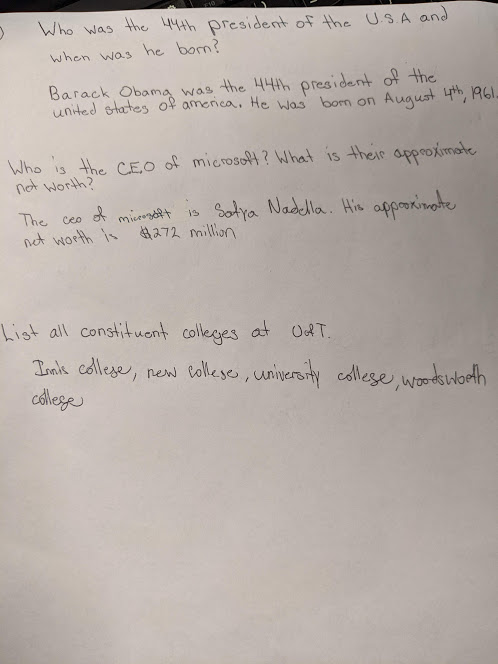 Who was the 44th president of the U.S.A and
when was he born?
Barack Obama was the 44th president of the
united states of america. He was born on August 4th, 1961.
Who is the CEO of microsoft? What is their approximate
net worth?
The ceo of microsoft is Satya Nadella. His approximate
net worth is $272 million
List all constituent colleges at UofT.
Innis college, new college, university college, woodsworth
college